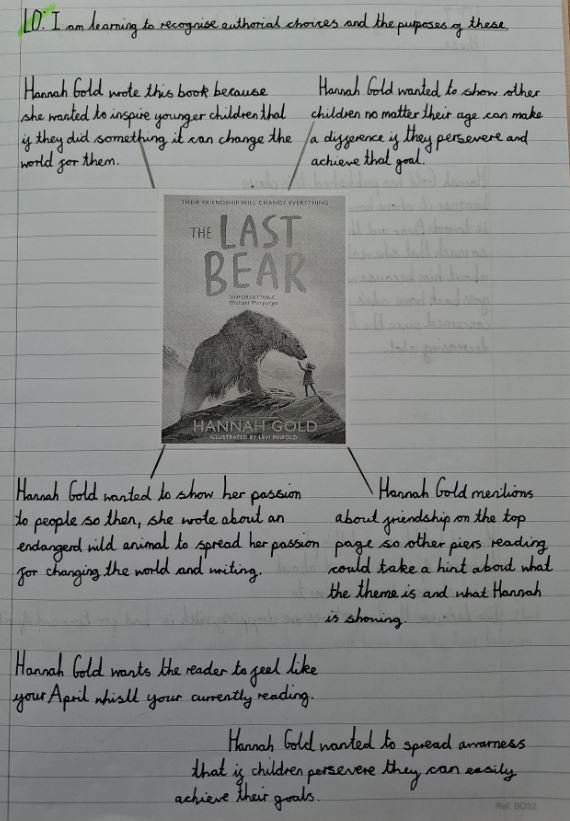 LO: I am learning to recognise authorial choices and the purposes of these.
Hannah Gold wrote this book because
she wanted to inspire younger children that
if they did something it can change the
world for them.
Hannah Gold wanted to show other
children no matter their age can make
a difference if they persevere and
achieve that goal.
THEIR FRIENDSHIP WILL CHANGE EVERYTHING
THE LAST
BEAR
'UNFORGETTABLE'
Michael Morpurgo
HANNAH GOLD
ILLUSTRATED BY LEVI PINFOLD
Hannah Gold wanted to show her passion
to people so then, she wrote about an
endangerd wild animal to spread her passion
for changing the world and writing.
Hannah Gold mentions
about friendship on the top
page so other piers reading
could take a hint about what
the theme is and what Hannah
is showing.
Hannah Gold wants the reader to feel like
your April whisll your currently reading.
Hannah Gold wanted to spread awarness
that if children persevere they can easily
achieve their goals.
Ref: BO32